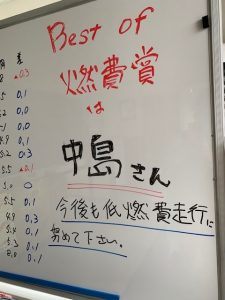 Best of
燃費賞
は
中島さん
今後も低燃費走行に
努めて下さい。
差
0.3
0.1
0.0
0.0
4.9 0.1
5.2 0.3
5.5 0.1
5.0 0
5.5 0.1
4.9 0.3
5.4 0.1
5.3 0.1
0.0 0.1